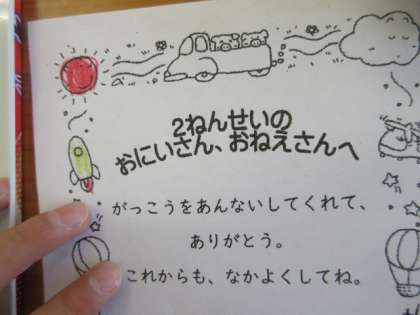 2ねんせいの
おにいさん、おねえさんへ
がっこうをあんないしてくれて、
ありがとう。
これからも、なかよくしてね。